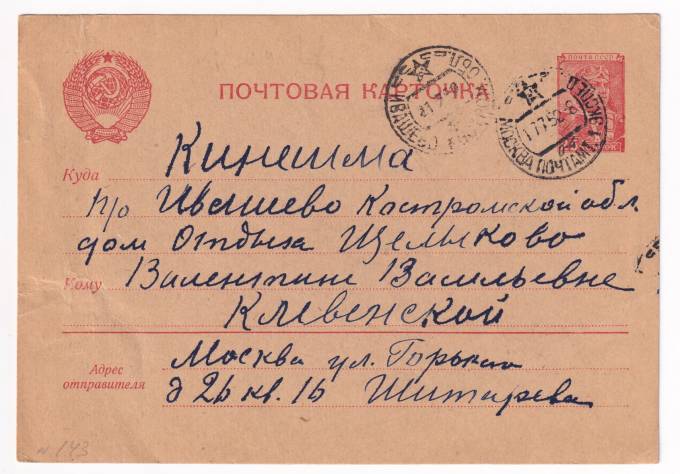 ПОЧТОВАЯ КАРТОЧКА
ПОЧТА СССР
МОСКВА ПОЧТАМТ 1 ЭКСПЕД.
ИВАШЕВО
Куда Кинешма
п/о Ивашево Костромской обл.
дом Отдыха Щелыково
Кому Валентине Васильевне
Клевенской
Адрес отправителя
Москва ул. Горького
д 26 кв. 16 Шитарева
N 143